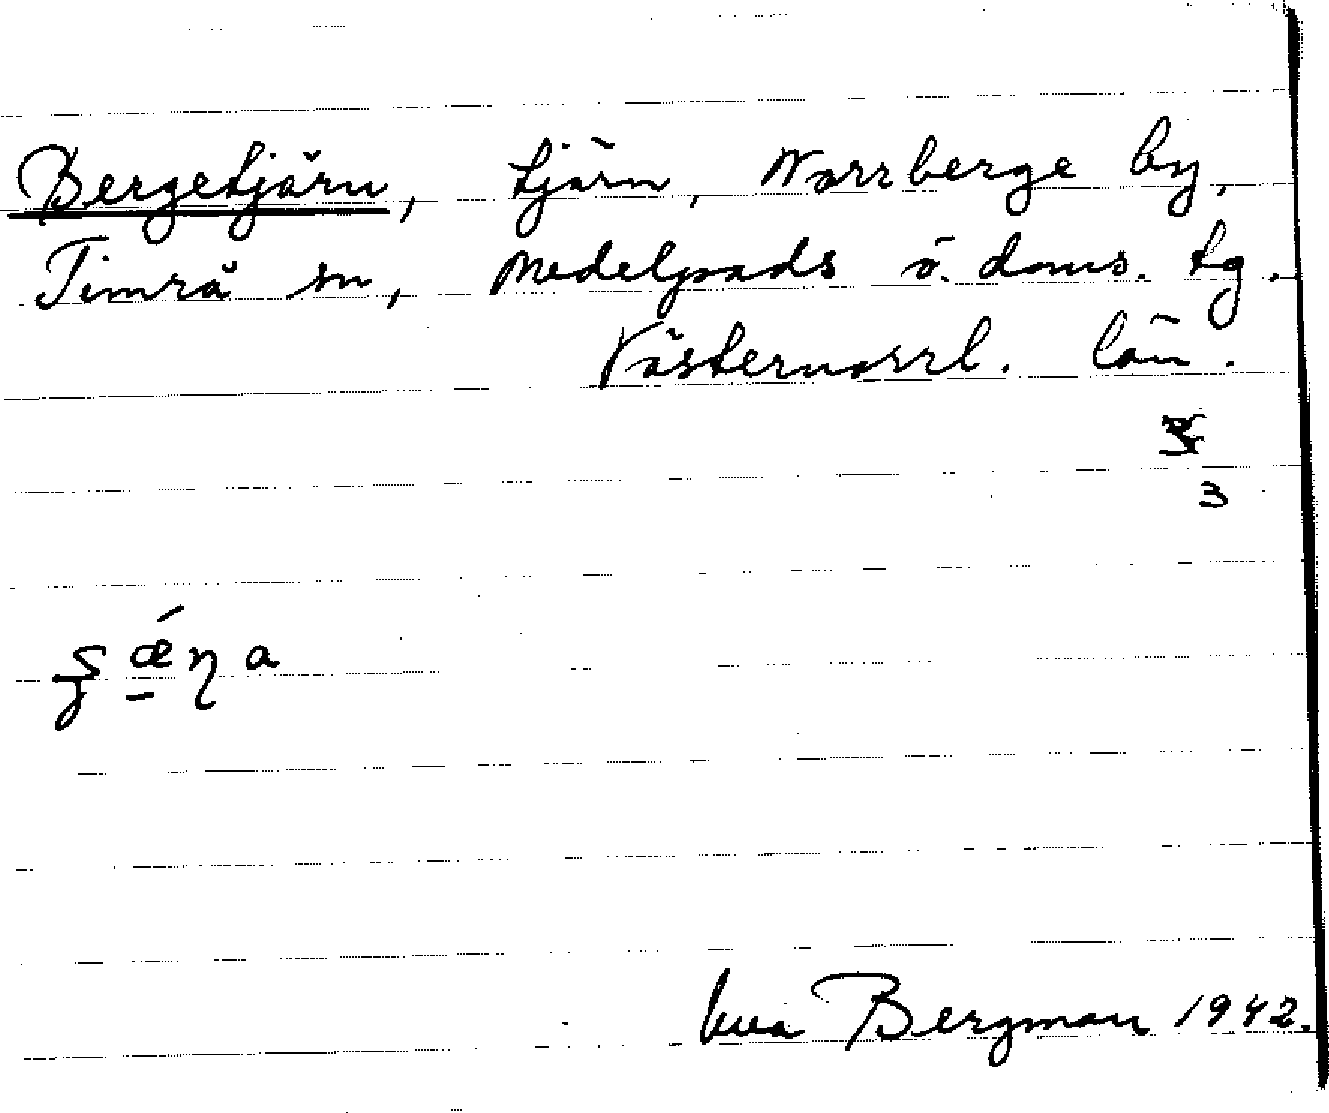 Bergetjärn, tjärn, Norrberge by,
Timrå sn, Medelpads ö. doms. tg.
Västernorrl. län.
3
Bergman 1942.